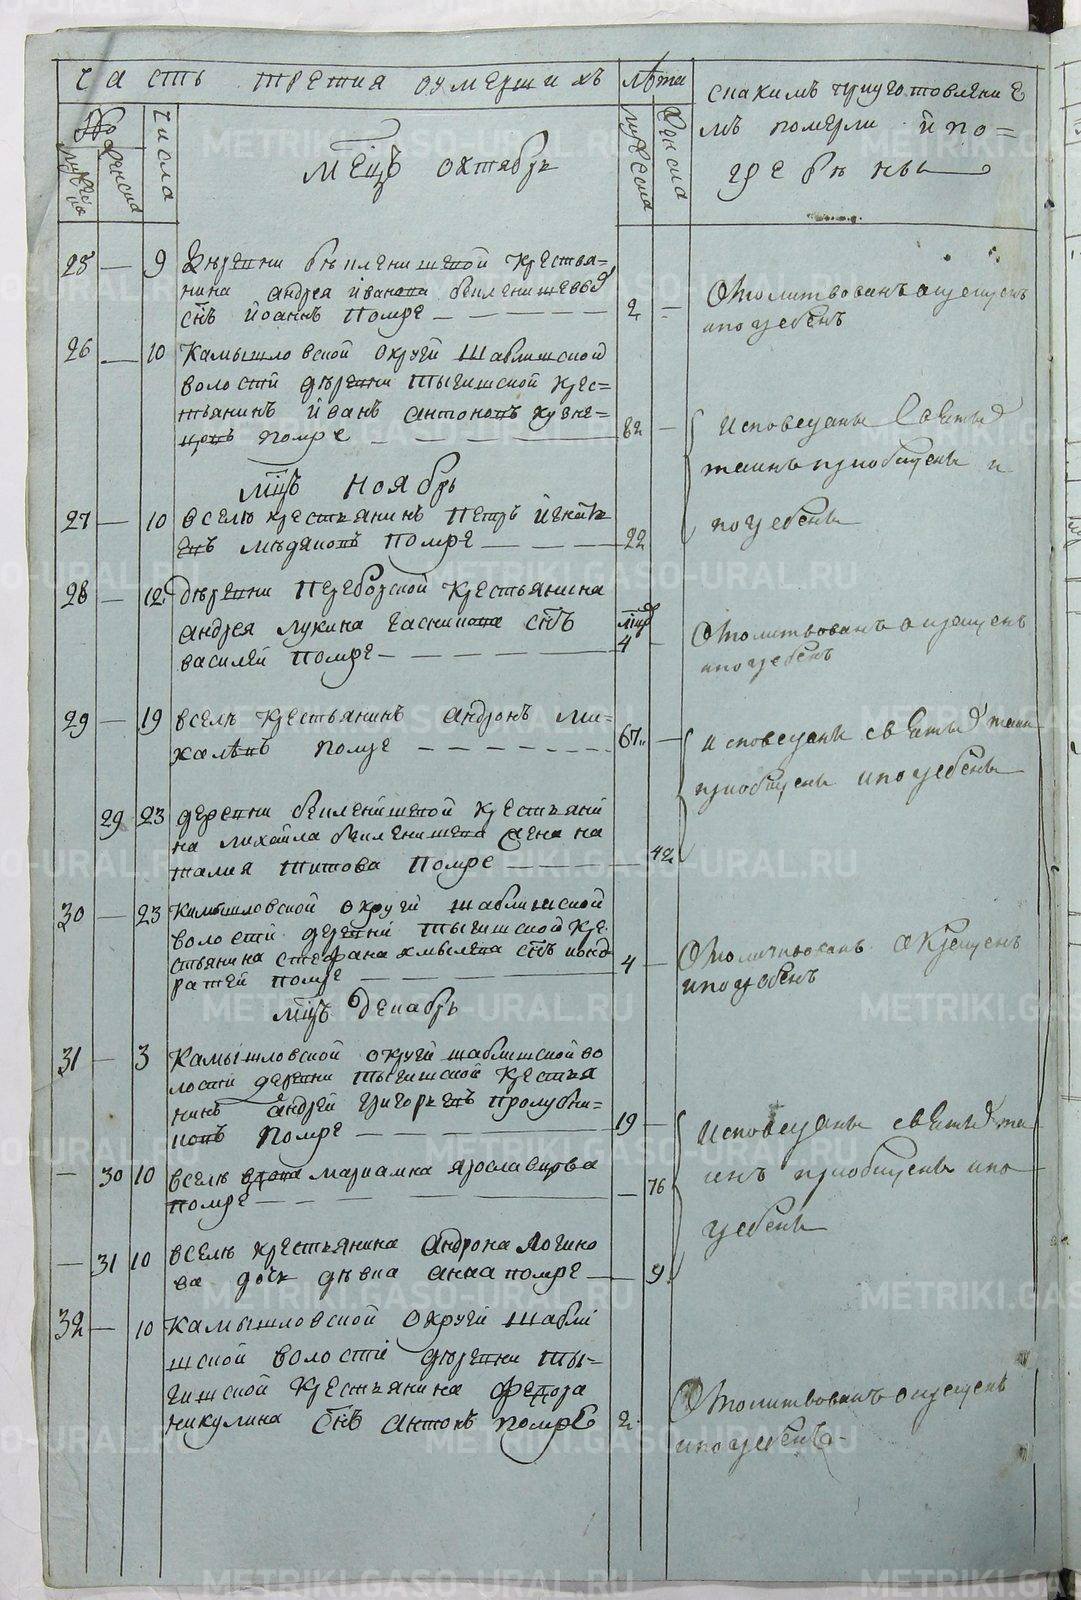 часть третия оумершихъ
лѣта
съ какимъ приуготовление
мъ померли и по=
гребены
№
мужеска
женска
числа
мужеска
женска
мсцъ октябрь
25 — 9 деревни беиленишевой крестья=
нина андрея иванова беиленишевы
снъ иоаннъ помре — 2 —
Отмолитвованъ окрещенъ
и погребенъ
26 — 10 Камышловской округи шаблишской
волости деревни тыгишской крес=
тьянинъ иванъ антоновъ кузне=
цовъ помре — 82 —
Исповеданы святыхъ
таинъ приобщены и
погребены
мсцъ ноябрь
27 — 10 в селѣ крестьянинъ петръ игнатъ
евъ мѣдяновъ помре — 22
28 — 12 деревни переборской крестьянина
андрея лукина часникова снъ
василей помре — мцов 4 —
Отмолитвованъ окрещенъ
и погребенъ
29 — 19 в селѣ крестьянинъ андронъ ми=
халевъ помре — 67 —
исповеданы святыхъ таин
приобщены и погребены
29 23 деревни беиленишевой крестьяни
на михаила беиленишева жена на
талия титова помре — 42
30 — 23 Камышловской округи шаблишской
волости деревни тыгишской кре
стьянина стефана хмылева снъ конд
ратей помре — 4 —
Отмолитвованъ окрещенъ
и погребенъ
мсцъ декабрь
31 — 3 Камышловской округи шаблишской во
лости деревни тыгишской крестья
нинъ андрей григорьевъ пролубни=
ковъ помре — 19 —
Исповеданы святыхъ та
инъ приобщены и по
гребены
— 30 10 в селѣ вдова мариамна ярославцова
помре — 76
— 31 10 в селѣ крестьянина андрона логино
ва дочь девка анна помре — 9
32 — 10 Камышловской округи шабли
шской волости деревни ты=
гишской крестьянина федора
никулина снъ антонъ помре 2
Отмолитвованъ окрещенъ
и погребенъ
METRIKI.GASO-URAL.RU